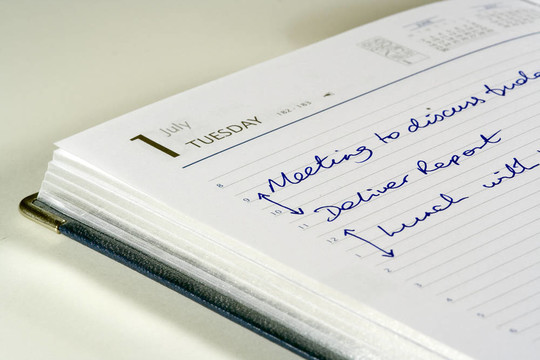 1 July
TUESDAY 182-183
8
9 Meeting to discuss
10
11 Deliver Report
12 Lunch with
1
2
3
4
5
6